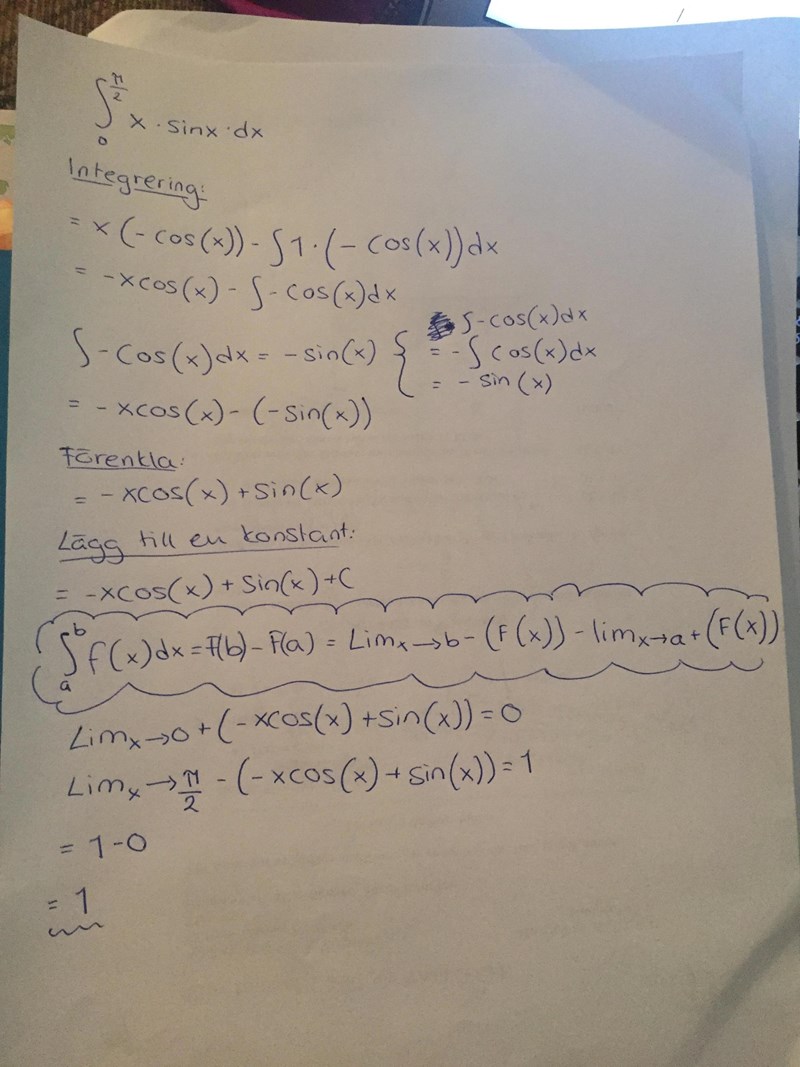 ∫₀^(π/2) x · sinx · dx
Integrering:
= x(-cos(x)) - ∫1·(-cos(x))dx
= -xcos(x) - ∫-cos(x)dx
∫-cos(x)dx = -sin(x) { ∫-cos(x)dx
= -∫cos(x)dx
= -sin(x)
= -xcos(x) - (-sin(x))
Förenkla:
= -xcos(x) + sin(x)
Lägg till en konstant:
= -xcos(x) + sin(x) + C
∫ₐᵇ f(x)dx = F(b) - F(a) = Limₓ→b - (F(x)) - limₓ→a + (F(x))
Limₓ→0 + (-xcos(x) + sin(x)) = 0
Limₓ→π/2 - (-xcos(x) + sin(x)) = 1
= 1-0
= 1